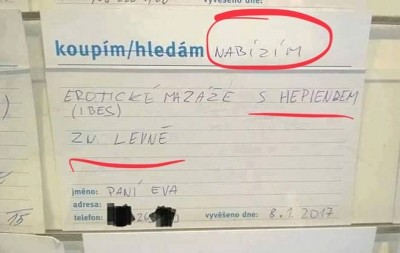 vyvěšeno dne:
koupím/hledám NABÍZÍM
EROTICKÉ MAZÁŽE S HEPIENDEM
(I BES)
ZN. LEVNĚ
jméno: PANÍ EVA
adresa:
telefon: vyvěšeno dne: 8.1.2017
15